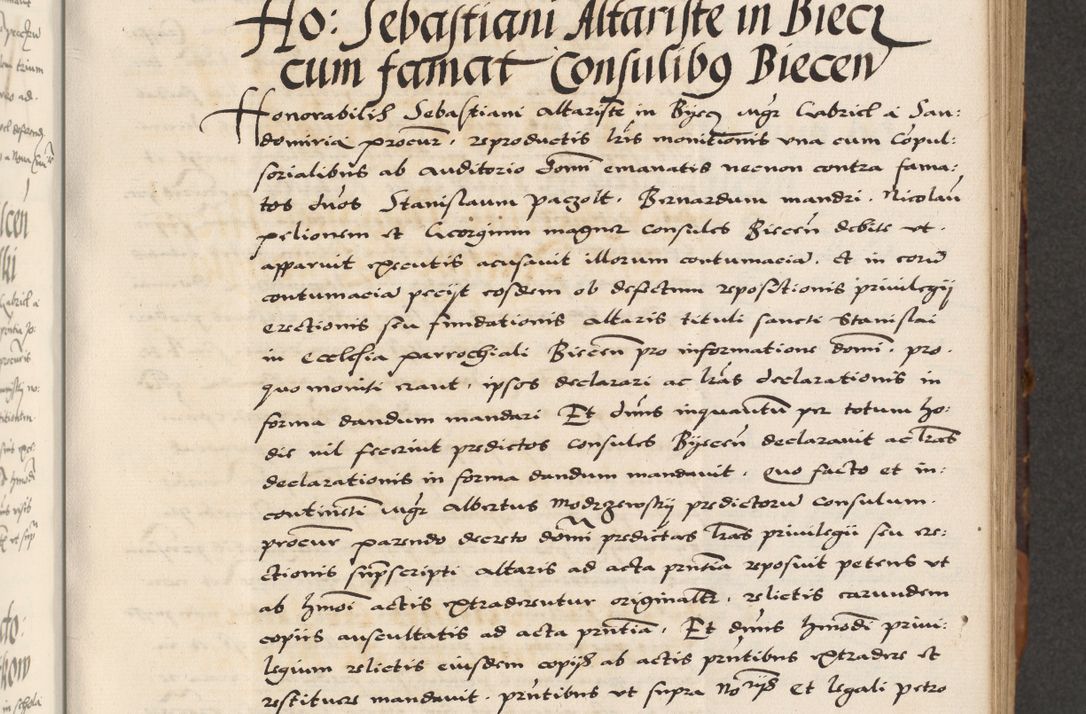 Ho: Sebastiani Altariste in Biecz
cum famat Consulibq Biecen
Honorabilis Sebastiani altariste in Byecz mgr Gabriel a San:
domiria procur. reproductis lris monitionis vna cum Copul:
sorialibus ab auditorio domi emanatis necnon contra fama:
tos duos Stanislaum paczolt. Bernardum mandri. Nicolau
pelionem et Georgium magner Consules Biecen debite ut.
apparuit executis acusauit illorum contumacia. Et in coru
contumacia pecijt eosdem ob defectum repositionis privilegij
erectionis seu fundationis altaris tituli sancti Stanislai
in Ecclesia parrochiali Biecen pro informatione domi. pro.
quo moniti erant. ipsos declarari ac lras declarationis in
forma dandum mandari Et dnus inquantu per totum ho:
die nil fecerint predictos consules Byecen declarauit ac lras
declarationis in forma dandum mandauit. Quo facto et in:
continenti mgr Albertus Modrzewskij predictoru consulum.
procur parendo decreto domi predictas lras privilegii seu ere:
ctionis suprscripti altaris ad acta prntia reposuit petens ut
ab hmoi actis extraderentur originalr. relictis earundem
copiis auscultatis ad acta prntia. Et dnus hmodi privi:
legium relictis eiusdem copijs ab actis prntibus extradere et
restituere mandauit. prntibus ut supra Noriis Et legali petro